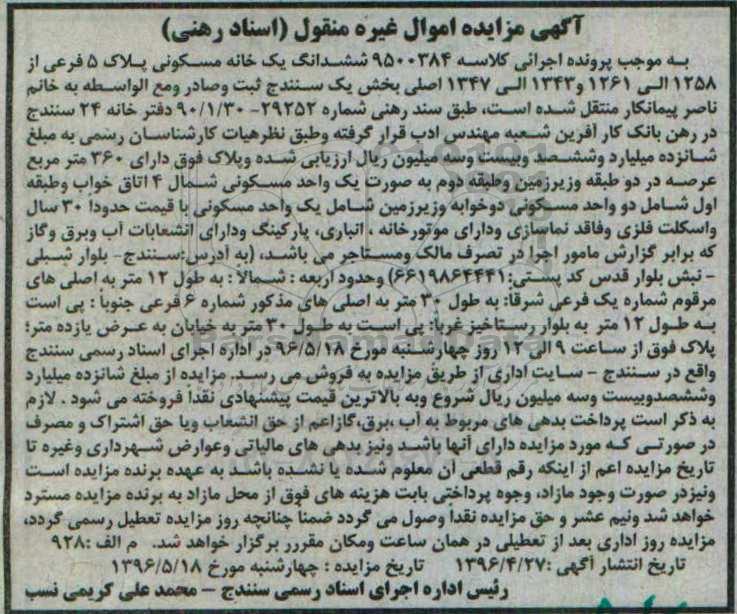 آگهی مزایده اموال غیره منقول (اسناد رهنی)
به موجب پرونده اجرائی کلاسه ۹۵۰۰۳۸۴ ششدانگ یک خانه مسکونی پلاک ۵ فرعی از
۱۲۵۸ الی ۱۲۶۱ و ۱۳۴۳ الی ۱۳۴۷ اصلی بخش یک سنندج ثبت وصادر ومع الواسطه به خانم
ناصر پیمانکار منتقل شده است، طبق سند رهنی شماره ۲۹۲۵۲- ۹۰/۱/۳۰ دفتر خانه ۲۴ سنندج
در رهن بانک کار آفرین شعبه مهندس ادب قرار گرفته وطبق نظرهیات کارشناسان رسمی به مبلغ
شانزده میلیارد وششصد وبیست وسه میلیون ریال ارزیابی شده وپلاک فوق دارای ۳۶۰ متر مربع
عرصه در دو طبقه وزیرزمین وطبقه دوم به صورت یک واحد مسکونی شمال ۴ اتاق خواب وطبقه
اول شامل دو واحد مسکونی دوخوابه وزیرزمین شامل یک واحد مسکونی با قیمت حدودا ۳۰ سال
واسکلت فلزی وفاقد نماسازی ودارای موتورخانه ، انباری، پارکینگ ودارای انشعابات آب وبرق وگاز
که برابر گزارش مامور اجرا در تصرف مالک ومستاجر می باشد، (به آدرس:سنندج- بلوار شبلی
- نبش بلوار قدس کد پستی:۶۶۱۹۸۶۴۴۴۱) وحدود اربعه : شمالا : به طول ۱۲ متر به اصلی های
مرقوم شماره یک فرعی شرقا: به طول ۳۰ متر به اصلی های مذکور شماره ۶ فرعی جنوبا : پی است
به طول ۱۲ متر به بلوار رستاخیز غربا: پی است به طول ۳۰ متر به خیابان به عرض یازده متر؛
پلاک فوق از ساعت ۹ الی ۱۲ روز چهارشنبه مورخ ۹۶/۵/۱۸ در اداره اجرای اسناد رسمی سنندج
واقع در سنندج - سایت اداری از طریق مزایده به فروش می رسد. مزایده از مبلغ شانزده میلیارد
وششصدوبیست وسه میلیون ریال شروع وبه بالاترین قیمت پیشنهادی نقدا فروخته می شود . لازم
به ذکر است پرداخت بدهی های مربوط به آب ،برق،گازاعم از حق انشعاب ویا حق اشتراک و مصرف
در صورتی که مورد مزایده دارای آنها باشد ونیز بدهی های مالیاتی وعوارض شهرداری وغیره تا
تاریخ مزایده اعم از اینکه رقم قطعی آن معلوم شده یا نشده باشد به عهده برنده مزایده است
ونیزدر صورت وجود مازاد، وجوه پرداختی بابت هزینه های فوق از محل مازاد به برنده مزایده مسترد
خواهد شد ونیم عشر و حق مزایده نقدا وصول می گردد ضمنا چنانچه روز مزایده تعطیل رسمی گردد،
مزایده روز اداری بعد از تعطیلی در همان ساعت ومکان مقررر برگزار خواهد شد. م الف :۹۲۸
تاریخ انتشار آگهی :۱۳۹۶/۴/۲۷ تاریخ مزایده : چهارشنبه مورخ ۱۳۹۶/۵/۱۸
رئیس اداره اجرای اسناد رسمی سنندج - محمد علی کریمی نسب